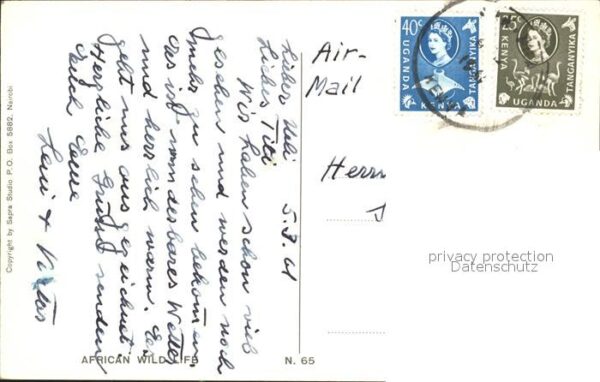 Lieber Ueli 5.3.61
Liebes Titi
Wir haben schon viel
gesehen und werden noch
mehr zu sehen bekommen.
Das ist wunderbares Wetter
und herrlich warm. Es
geht uns ausgezeichnet.
Herzliche Grüsse senden
Euch Eure
Air-
Mail
Herrn
40c
UGANDA
TANGANYIKA
KENYA
25c
KENYA
TANGANYIKA
UGANDA
privacy protection
Datenschutz
Copyright by Sapra Studio P.O. Box 5882, Nairobi
AFRICAN WILD LIFE N. 65